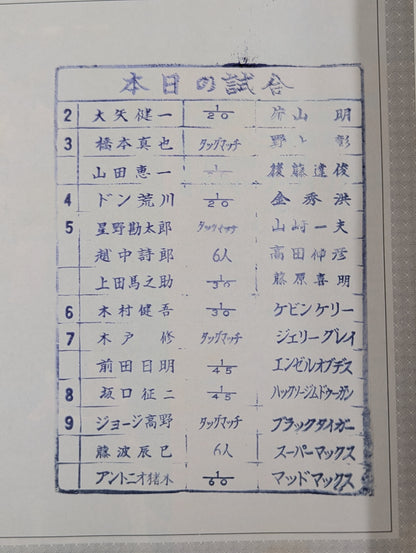 本日の試合
2 大矢健一 1/20 片山 明
3 橋本真也 タッグマッチ 野上 彰
山田恵一 後藤達俊
4 ドン荒川 1/20 金秀洪
5 星野勘太郎 タッグマッチ 山崎一夫
越中詩郎 6人 高田伸彦
上田馬之助 1/30 藤原喜明
6 木村健吾 1/30 ケビンケリー
7 木戸 修 タッグマッチ ジェリーグレイ
前田日明 1/45 エンゼルオブデス
8 坂口征二 1/45 ハックソージムドゥーガン
9 ジョージ高野 タッグマッチ ブラックタイガー
藤波辰巳 6人 スーパーマックス
アントニオ猪木 1/60 マッドマックス